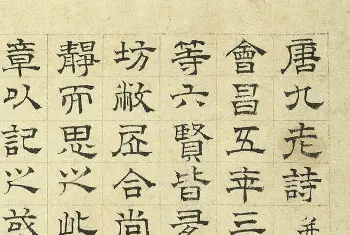 唐九老詩并
會昌五年三
等六賢皆多
坊敝居合尚
靜而思之此
章以記之或